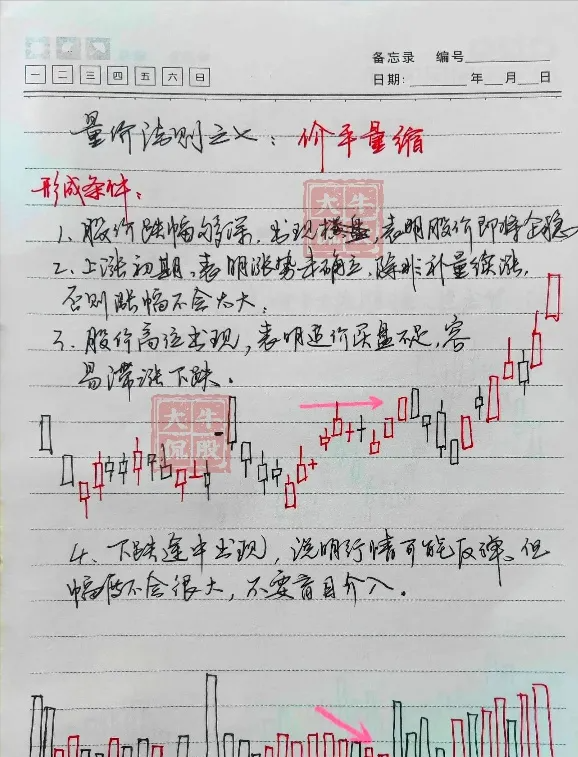 备忘录 编号
一 二 三 四 五 六 日
日期: 年 月 日
量价法则之七: 价平量缩
形成条件:
1、股价跌幅够深,出现横盘,表明股价即将企稳
2、上涨初期,表明涨势未确立,除非补量续涨,
否则涨幅不会太大;
3、股价高位出现,表明追价买盘不足,容
易滞涨下跌。
大牛
侃股
大牛
侃股
4、下跌途中出现,说明行情可能反弹,但
幅度不会很大,不要盲目介入。